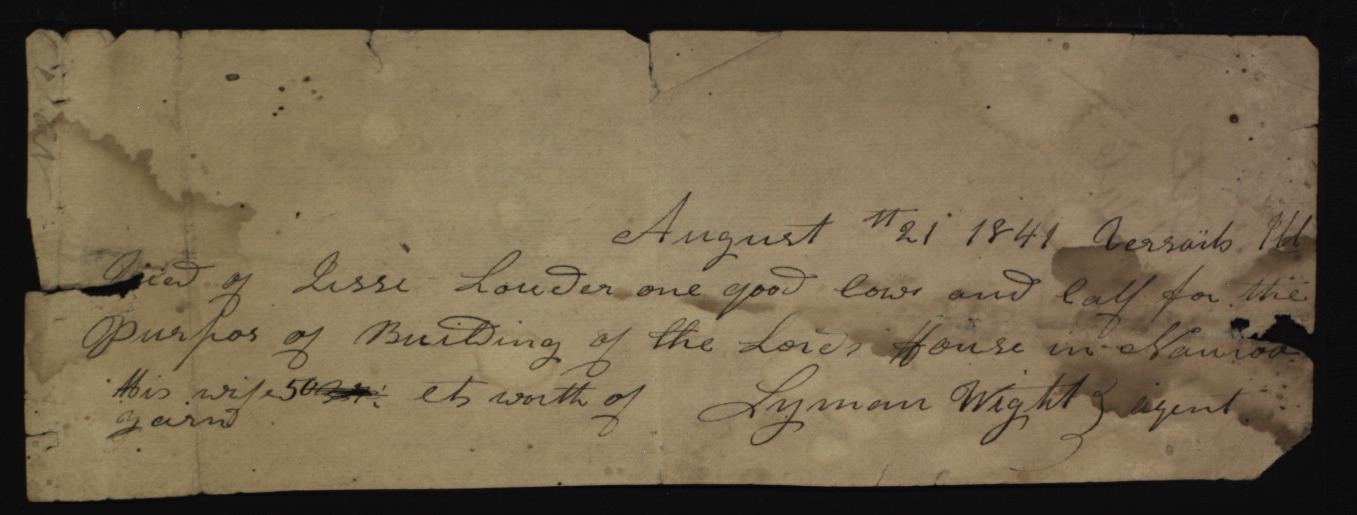 August th 21 1841 Versails Ill
Rcied of Jesse Louder one good Cow and Calf for the
Purpos of Building of the Lords House in Nauvoo
His wife 50 cts worth of Lyman Wight agent
yarn